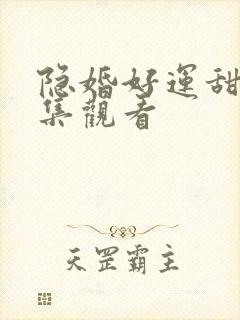 隐婚好運甜
集觀看
天罡霸主